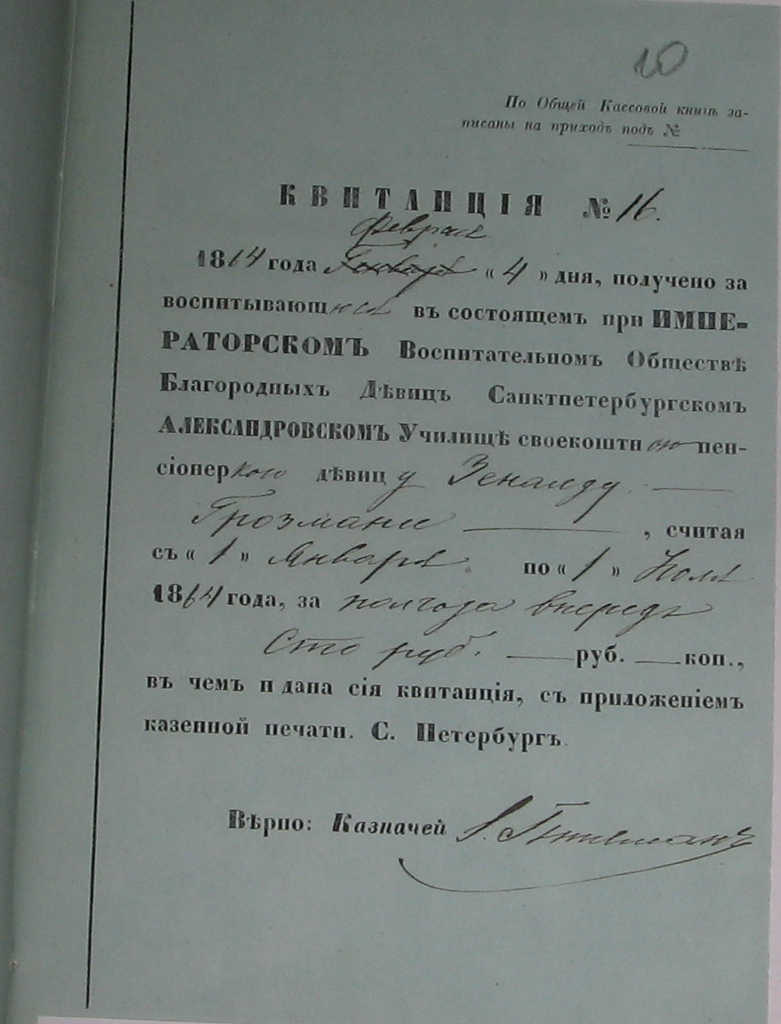 10
По Общей Кассовой книгѣ за-
писаны на приходъ подъ №
КВИТАНЦІЯ № 16.
февраля
1864 года Января « 4 » дня, получено за
воспитывающуюся въ состоящемъ при ИМПЕ-
РАТОРСКОМЪ Воспитательномъ Обществѣ
Благородныхъ Дѣвицъ Санктпетербургскомъ
АЛЕКСАНДРОВСКОМЪ Училищѣ своекоштною пен-
сіонеркою дѣвицу Зенаиду
, считая
съ « 1 » Января по « 1 » Юля
1864 года, за полгода впередъ
Сто руб. руб. коп.,
въ чемъ и дана сія квитанція, съ приложеніемъ
казенной печати. С. Петербургъ.
Вѣрно: Казначей